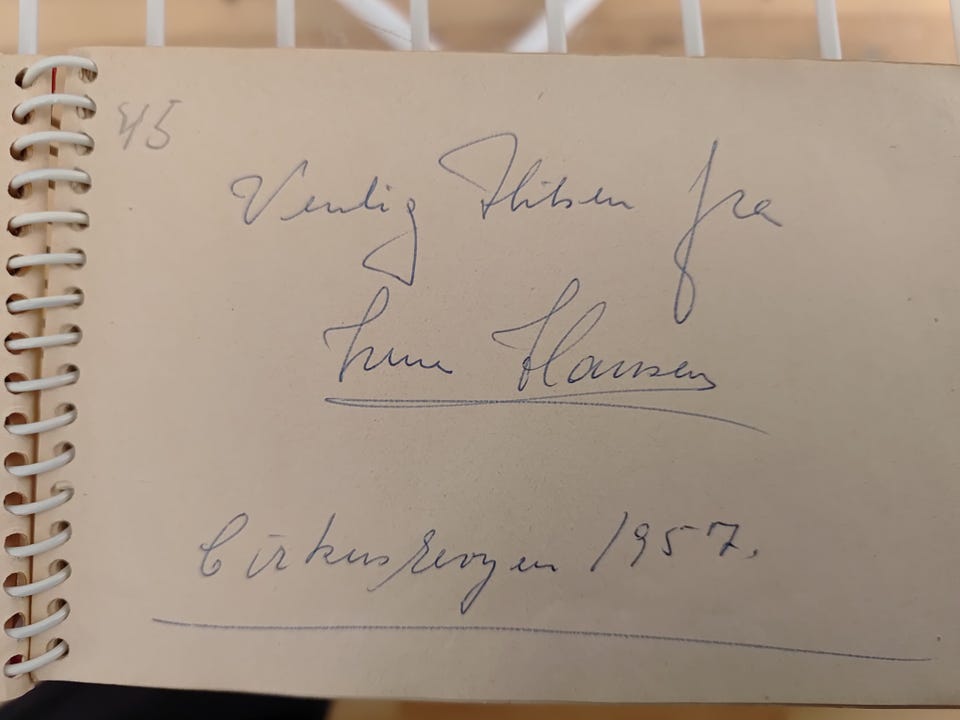 45
Venlig Hilsen fra
Irene Hansen
Cirkusrevyen 1957.